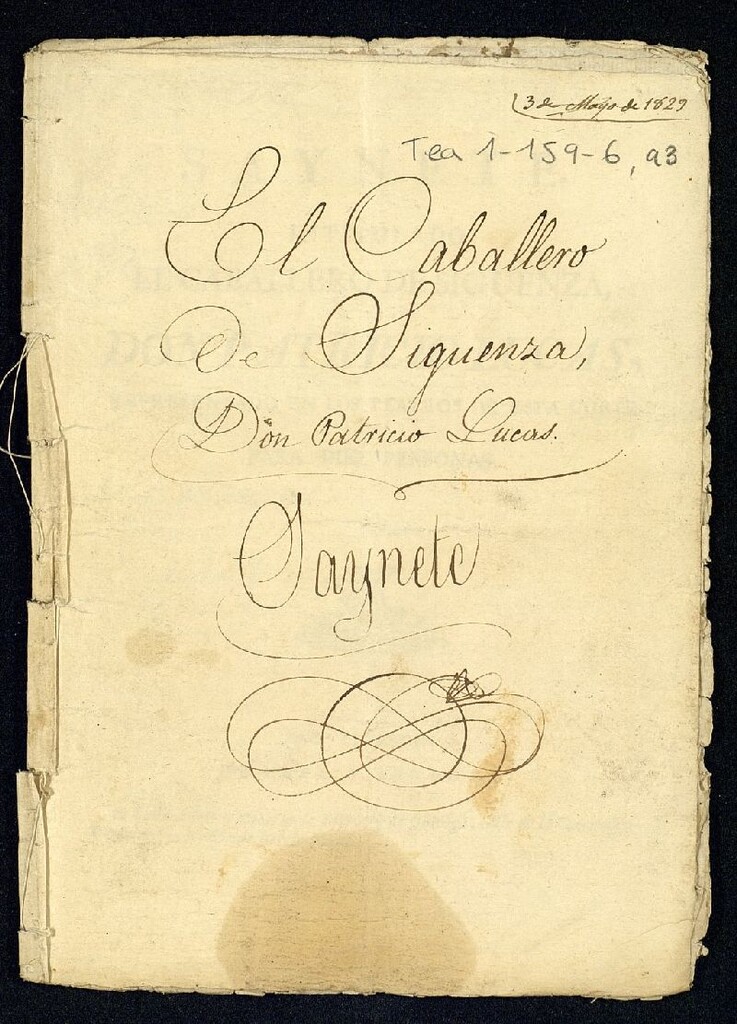 3 de Mayo de 1829
Tea 1-159-6, a3
El Caballero
De Siguenza,
Don Patricio Lucas.
Saynete